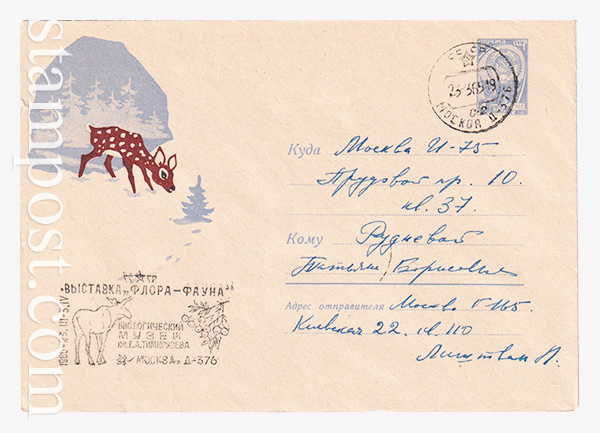 stampost.com
ПОЧТА
СССР
23 3 65 19
МОСКВА Д-376
Куда Москва И-75
Прудовой пр. 10.
кв. 37.
Кому Рудневой
Татьяне Борисовне
Адрес отправителя Москва Г-165
Киевская 22. кв. 110
СССР
ВЫСТАВКА „ФЛОРА–ФАУНА"
БИОЛОГИЧЕСКИЙ
МУЗЕЙ
ИМ. К.А. ТИМИРЯЗЕВА
МОСКВА, Д-376